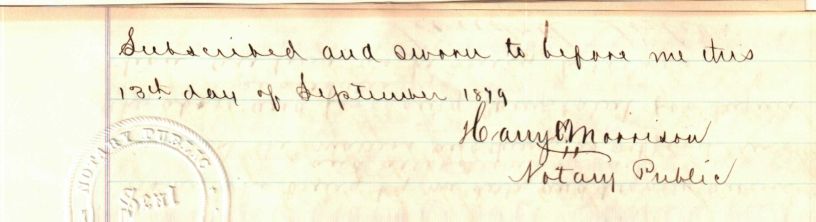 Subscribed and sworn to before me this
13th day of September 1879
Harry Morrison
Notary Public
NOTARY PUBLIC
Seal